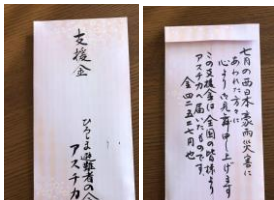 支援金
ひろしま避難者の会
アスチカ
七月の西日本豪雨災害に
あわれた方々に
心よりお見舞申し上げます
この支援金は全国の皆様より
アスチカへ届いたものです。
金四二五二七円也